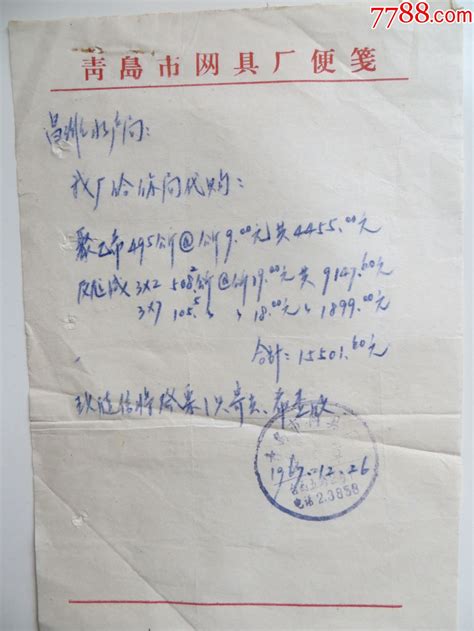 7788.com
青島市网具厂便笺
昌潍水产局:
我厂给你局代购:
聚乙布 495公斤@公斤9.00元共4455.00元
3×2 508.2公斤@公斤19.00元共 9147.60元
3×7 105.5 〃 〃 18.00元〃 1899.00元
合计:15501.60元
现随信将发票1只寄去、希查收
1967.12.26
电话2.3858